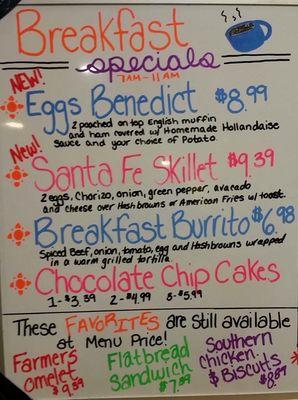 Breakfast
specials
7AM-11AM
NEW!
Eggs Benedict $8.99
2 poached on top English muffin
and ham covered w/ Homemade Hollandaise
Sauce and your Choice of Potato.
New!
Santa Fe Skillet $9.39
2 eggs, Chorizo, onion, green pepper, avacado
and cheese over Hashbrowns or American Fries w/ toast.
Breakfast Burrito $6.98
Spiced Beef, onion, tomato, egg and Hashbrowns wrapped
in a warm grilled tortilla.
Chocolate Chip Cakes
1-$3.39 2-$4.99 3-$5.99
These FAVORITES are still available
at Menu Price!
Farmers
Omelet
$9.39
Flatbread
Sandwich
$7.89
Southern
Chicken
& Biscuits
$8.89